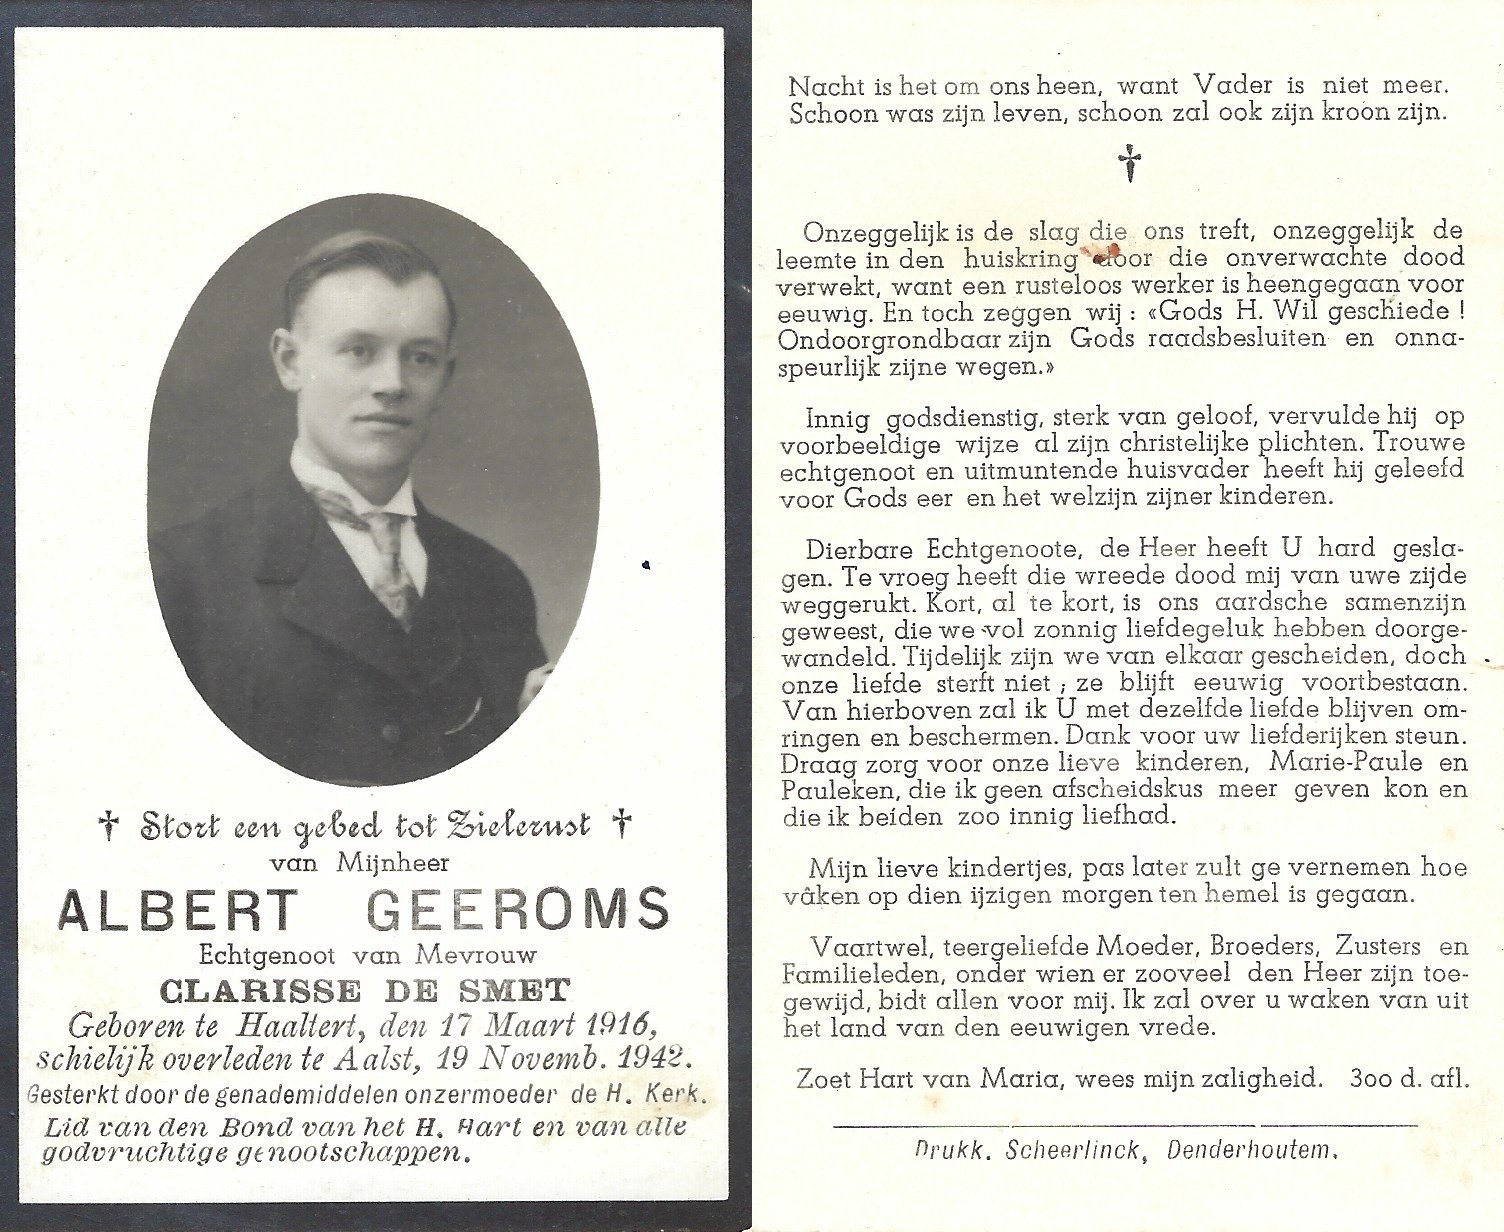 † Stort een gebed tot Zielerust †
van Mijnheer
ALBERT GEEROMS
Echtgenoot van Mevrouw
CLARISSE DE SMET
Geboren te Haaltert, den 17 Maart 1916,
schielijk overleden te Aalst, 19 Novemb. 1942.
Gesterkt door de genademiddelen onzermoeder de H. Kerk.
Lid van den Bond van het H. Hart en van alle
godvruchtige genootschappen.
Nacht is het om ons heen, want Vader is niet meer.
Schoon was zijn leven, schoon zal ook zijn kroon zijn.
†
Onzeggelijk is de slag die ons treft, onzeggelijk de
leemte in den huiskring door die onverwachte dood
verwekt, want een rusteloos werker is heengegaan voor
eeuwig. En toch zeggen wij : «Gods H. Wil geschiede !
Ondoorgrondbaar zijn Gods raadsbesluiten en onna-
speurlijk zijne wegen.»
Innig godsdienstig, sterk van geloof, vervulde hij op
voorbeeldige wijze al zijn christelijke plichten. Trouwe
echtgenoot en uitmuntende huisvader heeft hij geleefd
voor Gods eer en het welzijn zijner kinderen.
Dierbare Echtgenoote, de Heer heeft U hard gesla-
gen. Te vroeg heeft die wreede dood mij van uwe zijde
weggerukt. Kort, al te kort, is ons aardsche samenzijn
geweest, die we vol zonnig liefdegeluk hebben doorge-
wandeld. Tijdelijk zijn we van elkaar gescheiden, doch
onze liefde sterft niet ; ze blijft eeuwig voortbestaan.
Van hierboven zal ik U met dezelfde liefde blijven om-
ringen en beschermen. Dank voor uw liefderijken steun.
Draag zorg voor onze lieve kinderen, Marie-Paule en
Pauleken, die ik geen afscheidskus meer geven kon en
die ik beiden zoo innig liefhad.
Mijn lieve kindertjes, pas later zult ge vernemen hoe
vâken op dien ijzigen morgen ten hemel is gegaan.
Vaartwel, teergeliefde Moeder, Broeders, Zusters en
Familieleden, onder wien er zooveel den Heer zijn toe-
gewijd, bidt allen voor mij. Ik zal over u waken van uit
het land van den eeuwigen vrede.
Zoet Hart van Maria, wees mijn zaligheid. 300 d. afl.
Drukk. Scheerlinck, Denderhoutem.